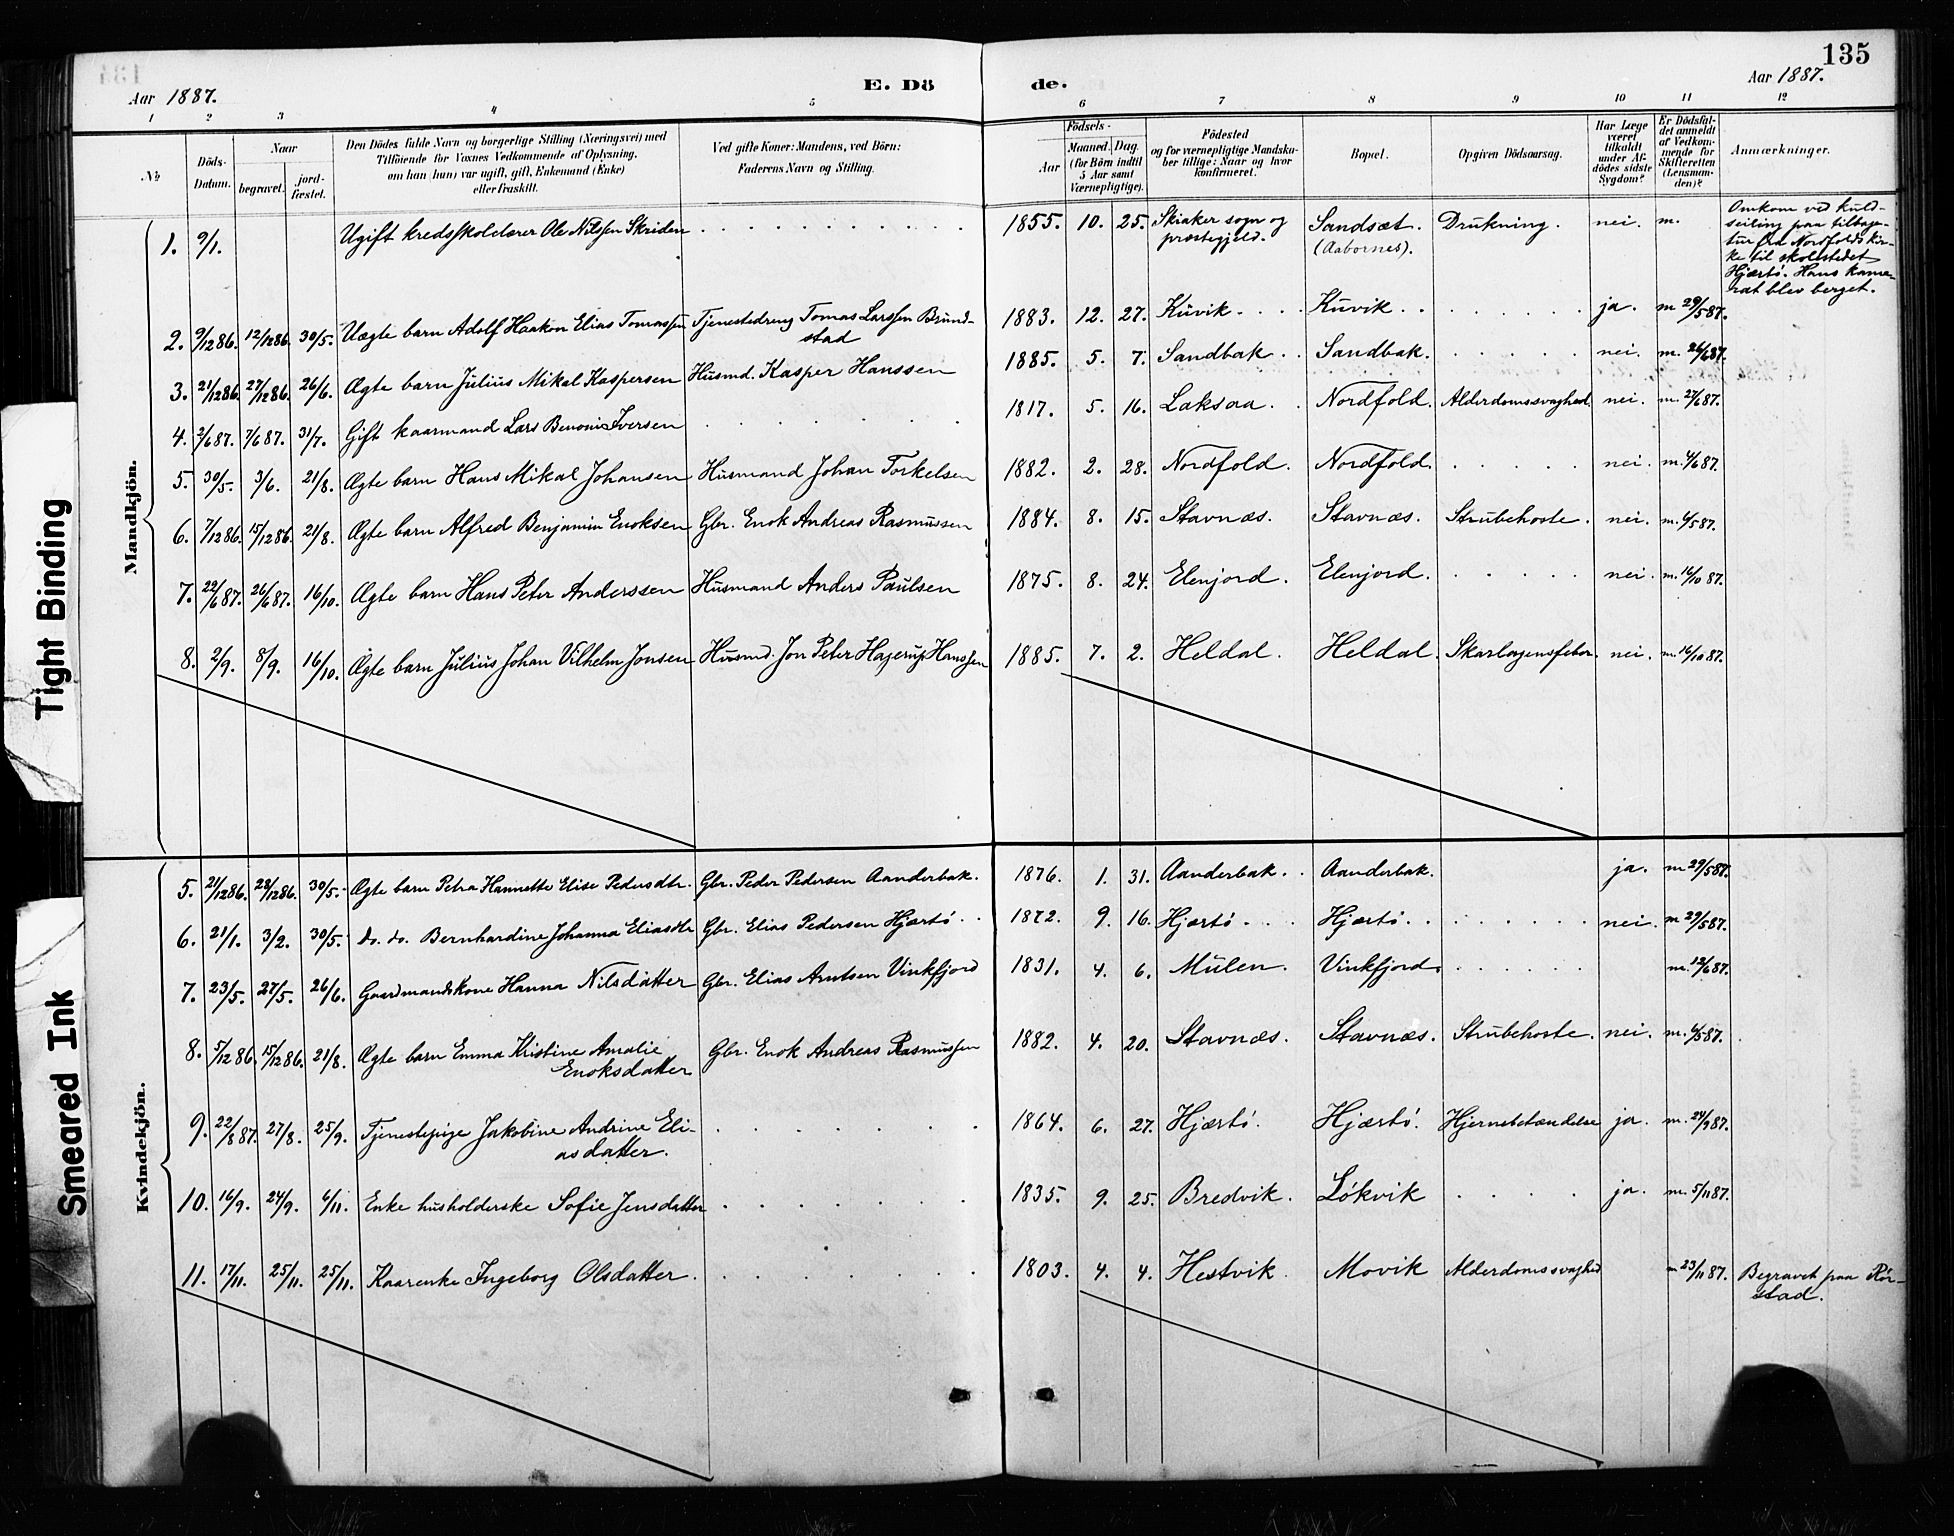 135
Aar 1887.
E. Dö
de.
Aar 1887.
1 2 3 4 5 6 7 8 9 10 11 12
№
Döds-Datum.
Naar
begravet.
jord-fæstet.
Den Dödes fulde Navn og borgerlige Stilling (Næringsvei) med
Tilföiende for Voxnes Vedkommende af Oplysning,
om han (hun) var ugift, gift, Enkemand (Enke)
eller fraskilt.
Ved gifte Koner: Mandens, ved Börn:
Faderens Navn og Stilling.
Födsels-
Aar
Maaned. Dag.
(for Börn indtil
5 Aar samt
Værnepligtige).
Födested
og for værnepligtige Mandska-
ber tillige: Naar og hvor
konfirmeret.
Bopæl.
Opgiven Dödsaarsag.
Har Læge
været
tilkaldt
under Af-
dödes sidste
Sygdom?
Er Dödsfal-
det anmeldt
af Vedkom-
mende for
Skifteretten
(Lensman-
den)?
Anmærkninger.
Mandkjön.
1. 9/1. Ugift kredsskolelærer Ole Nilsen Skriden 1855. 10. 25. Skiaker sogn og præstegjeld. Sandsæt. (Aabornes). Drukning. nei. m.
Omkom ved kuld-
seiling paa tilbage-
tur fra Nordfolds kir-
ke til skolstedet
Hjærtö. Hans kame-
rat blev berget.
2. 9/12 86. 12/12 86. 30/5. Uægte barn Adolf Haakon Elias Tomassen Tjenestedreng Tomas Larssen Brund-
stad 1883. 12. 27. Kuvik. Kuvik. ja. m. 29/5 87.
3. 21/12 86. 27/12 86. 26/6. Ægte barn Julius Mikal Kaspersen Husmd. Kasper Hanssen 1885. 5. 7. Sandbak. Sandbak. nei. m. 26/6 87.
4. 2/6 87. 7/6 87. 31/7. Gift kaarmand Lars Benoni Iversen 1817. 5. 16. Laksaa. Nordfold. Alderdomssvaghed. nei. m. 27/6 87.
5. 30/5. 3/6. 21/8. Ægte barn Hans Mikal Johansen Husmand Johan Torkelsen 1882. 2. 28. Nordfold. Nordfold. nei. m. 4/6 87.
6. 7/12 86. 15/12 86. 21/8. Ægte barn Alfred Benjamin Enoksen Gbr. Enok Andreas Rasmussen 1884. 8. 15. Stavnæs. Stavnæs. Strubehoste. nei. m. 6/5 87.
7. 22/6 87. 26/6 87. 16/10. Ægte barn Hans Peter Anderssen Husmand Anders Paulsen 1875. 8. 24. Elenjord. Elenjord. nei. m. 16/10 87.
8. 2/9. 8/9. 16/10. Ægte barn Julius Johan Vilhelm Jonsen Husmd. Jon Peter Hagerup Hanssen 1885. 7. 2. Heldal. Heldal. Skarlagensfeber. nei. m. 16/10 87.
Kvindekjön.
5. 21/12 86. 28/12 86. 30/5. Ægte barn Petra Hannette Elise Pedersdtr. Gbr. Peder Pedersen Aanderbak. 1876. 1. 31. Aanderbak. Aanderbak. ja. m. 29/5 87.
6. 21/1. 3/2. 30/5. do. do. Bernhardine Johanna Eliasdtr Gbr. Elias Pedersen Hjærtö. 1872. 9. 16. Hjærtö. Hjærtö. nei. m. 29/5 87.
7. 23/5. 27/5. 26/6. Gaardmandskone Hanna Nilsdatter Gbr. Elias Arntsen Vinkfjord 1831. 4. 6. Mulen. Vinkfjord. m. 12/6 87.
8. 5/12 86. 15/12 86. 21/8. Ægte barn Emma Kristine Amalie
Enoksdatter Gbr. Enok Andreas Rasmussen 1882. 4. 20. Stavnæs. Stavnæs. Strubehoste. nei. m. 6/5 87.
9. 22/8 87. 27/8. 25/9. Tjenestepige Jakobine Andrine Eli-
asdatter. 1864. 6. 27. Hjærtö. Hjærtö. Hjernebetændelse ja. m. 24/9 87.
10. 16/9. 24/9. 6/11. Enke husholderske Sofie Jensdatter 1835. 9. 25. Bredvik. Lökvik ja. m. 5/11 87.
11. 17/11. 25/11. 25/11. Kaarenke Ingeborg Olsdatter. 1803. 4. 4. Hestvik. Movik Alderdomssvaghed m. 23/11 87. Begravet paa Rör-
stad.
Tight Binding
Smeared Ink